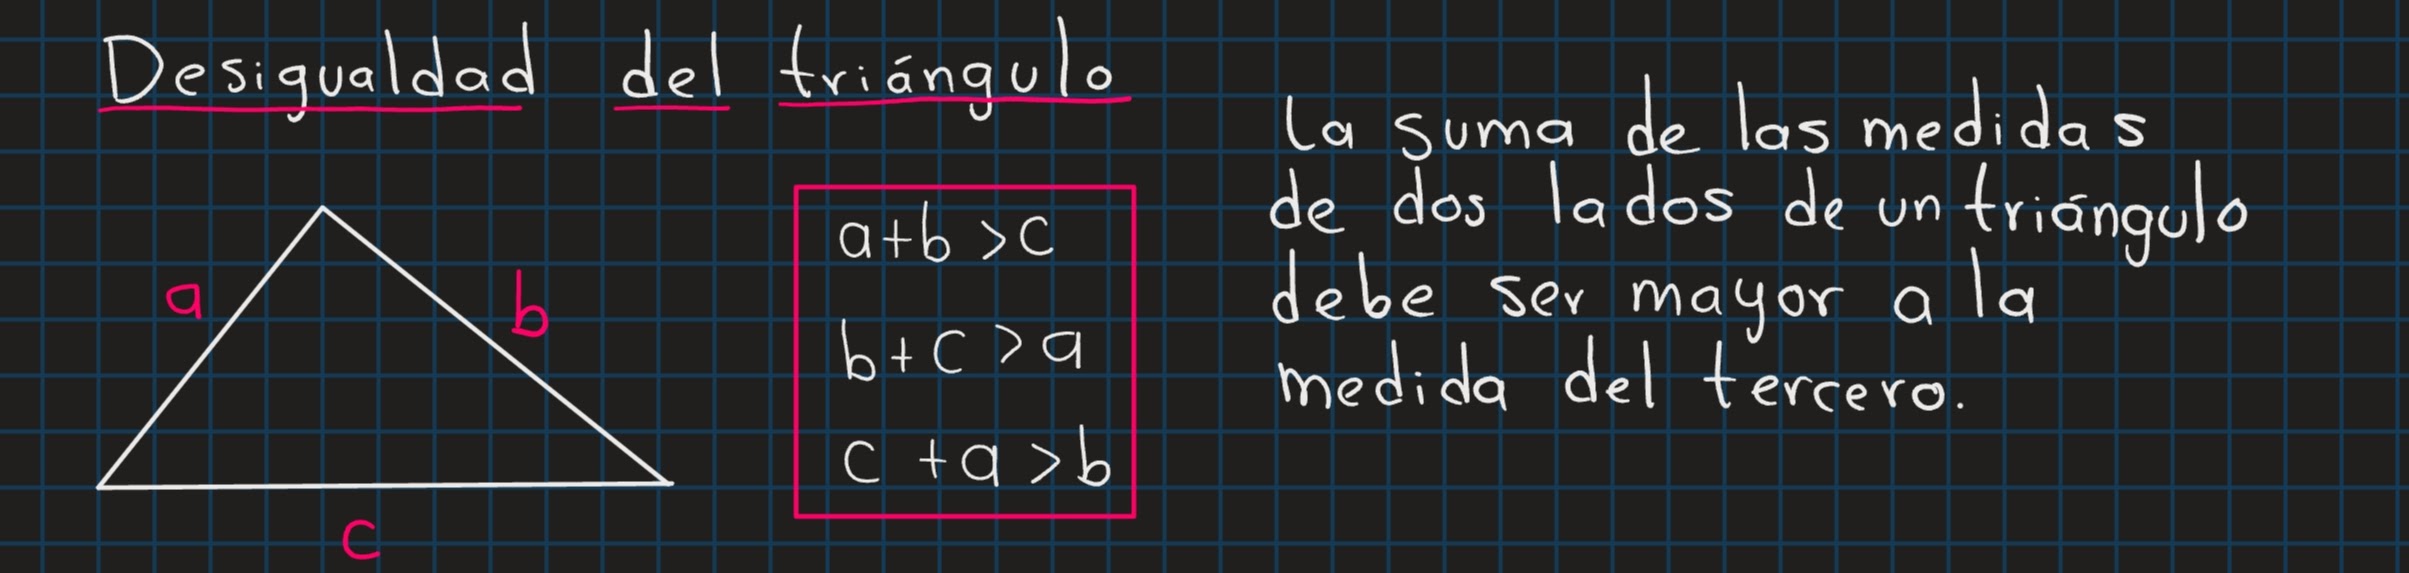 Desigualdad del triángulo
a
b
c
a+b >c
b+c >a
c +a >b
La suma de las medidas
de dos lados de un triángulo
debe ser mayor a la
medida del tercero.